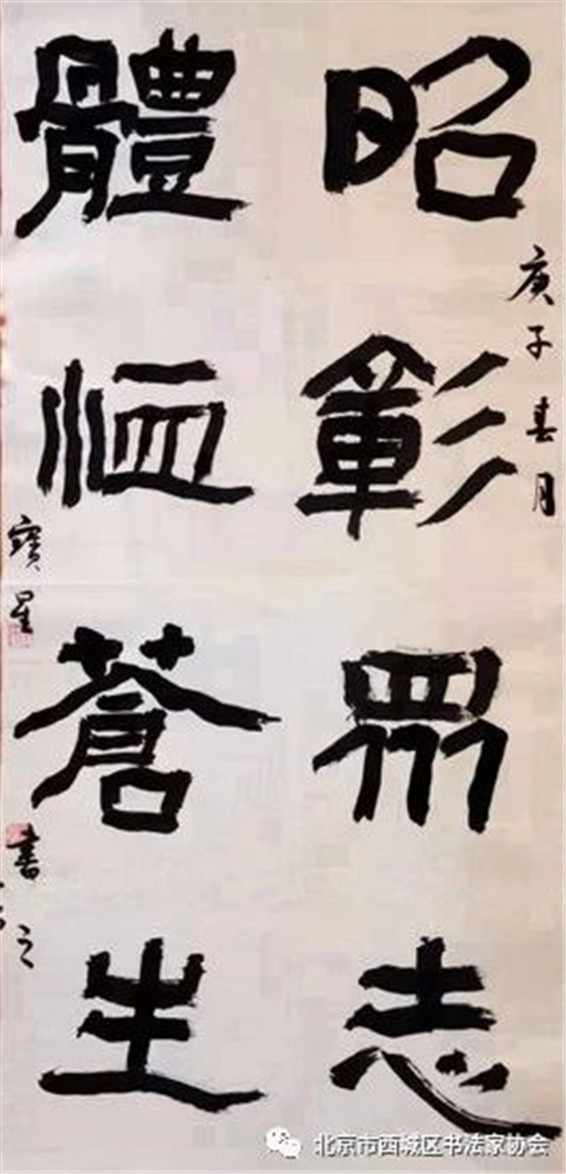 昭彰眾志
庚子春月
體恤蒼生
寶星書之
北京市西城区书法家协会